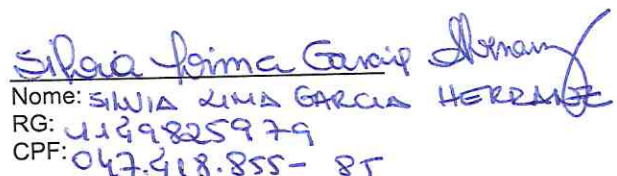 Silvia Lima Garcia
Nome: SILVIA LIMA GARCIA HERRANZ
RG: 1149825979
CPF: 047.418.855-85